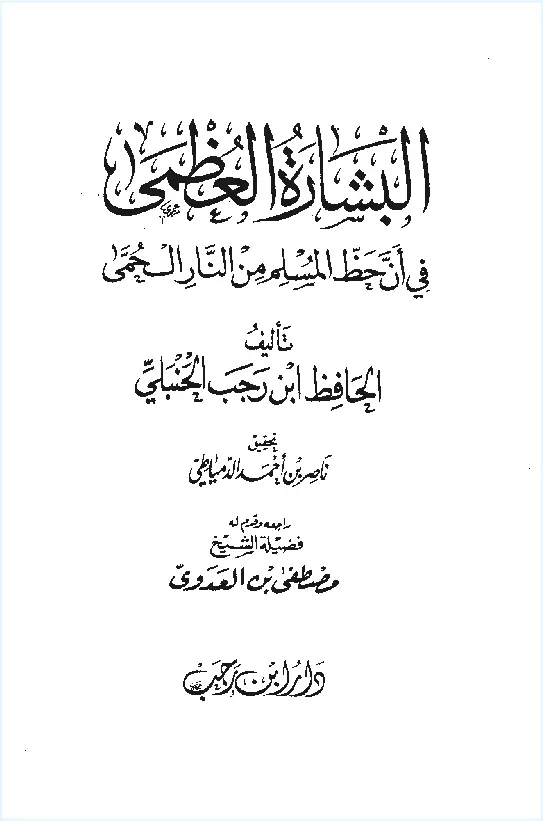 البشارة العظمى
في أن حظ المسلم من النار الحمى
تأليف
الحافظ ابن رجب الحنبلي
تحقيق
ناصر بن أحمد الدمياطي
راجعه وقدم له
فضيلة الشيخ
مصطفى بن العدوى
دار ابن رجب